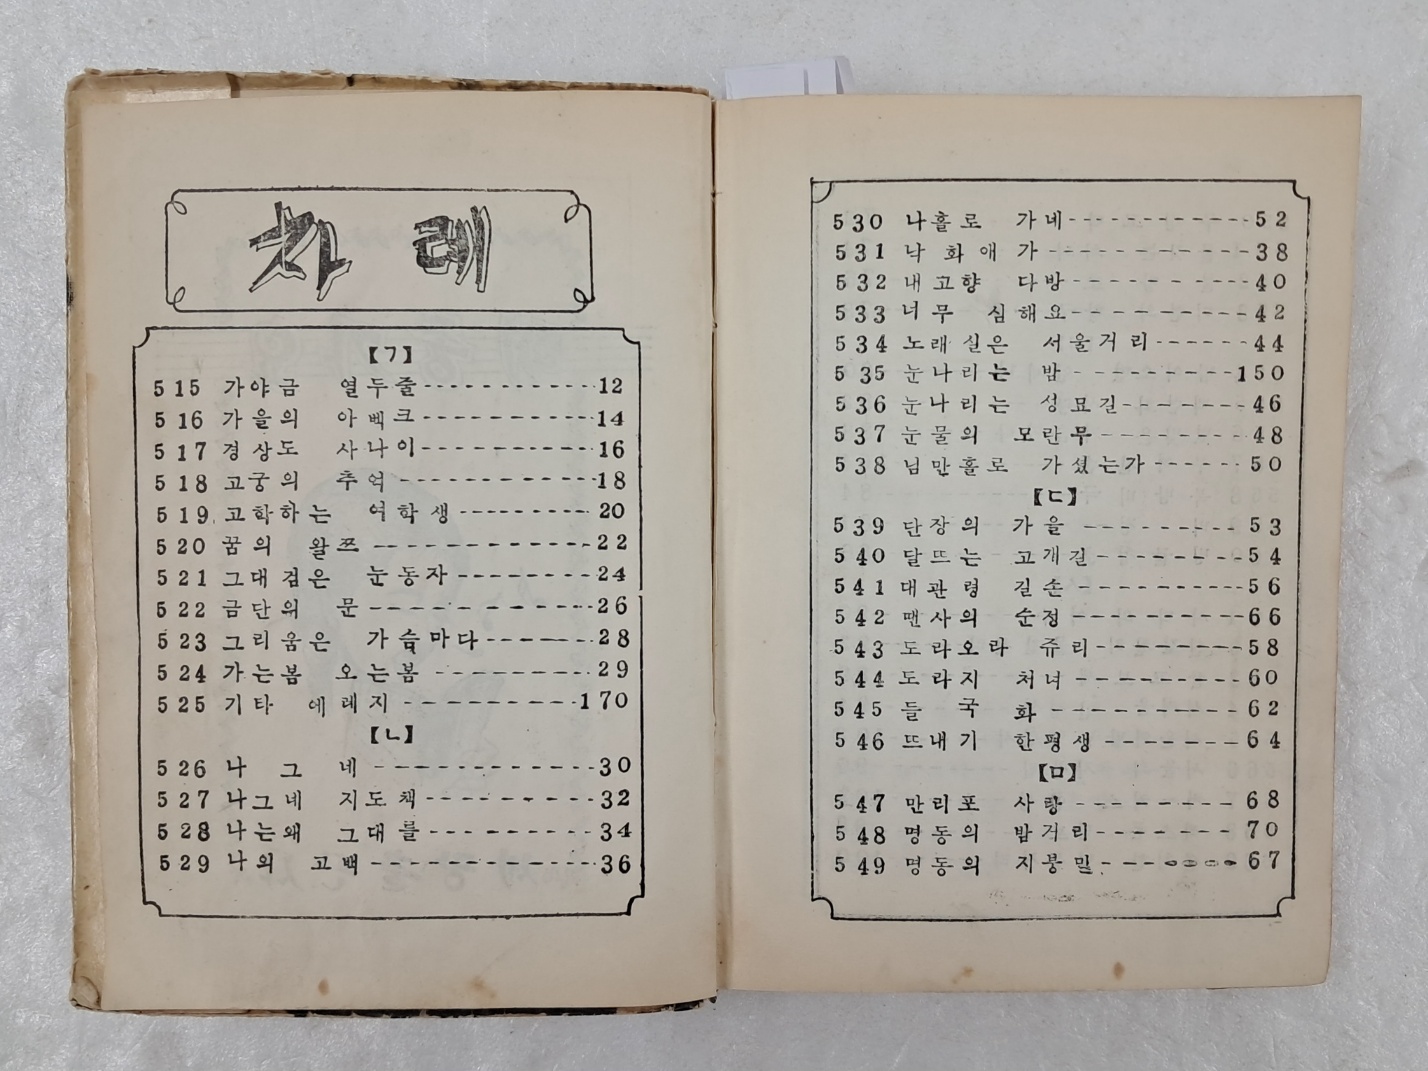 차례
【ㄱ】
515 가야금 열두줄-----------12
516 가을의 아베크-----------14
517 경상도 사나이-----------16
518 고궁의 추억-----------18
519 고학하는 여학생---------20
520 꿈의 왈쯔-------------22
521 그대 검은 눈동자--------24
522 금단의 문-------------26
523 그리움은 가슴마다-------28
524 가는봄 오는봄----------29
525 기타 에레지-----------170
【ㄴ】
526 나 그 네-------------30
527 나그네 지도책-----------32
528 나는왜 그대를-----------34
529 나의 고백-------------36
530 나홀로 가네------------52
531 낙화애가-------------38
532 내고향 다방-----------40
533 너무 심해요-----------42
534 노래실은 서울거리------44
535 눈나리는 밤-----------150
536 눈나리는 성묘길--------46
537 눈물의 모란무---------48
538 님만홀로 가셨는가------50
【ㄷ】
539 단장의 가을----------53
540 달뜨는 고개길---------54
541 대관령 길손----------56
542 맨사의 순정----------66
543 도라오라 쥬리---------58
544 도라지 처녀----------60
545 들 국 화-----------62
546 뜨내기 한평생--------64
【ㅁ】
547 만리포 사랑---------68
548 명동의 밤거리--------70
549 명동의 지붕밑--------67